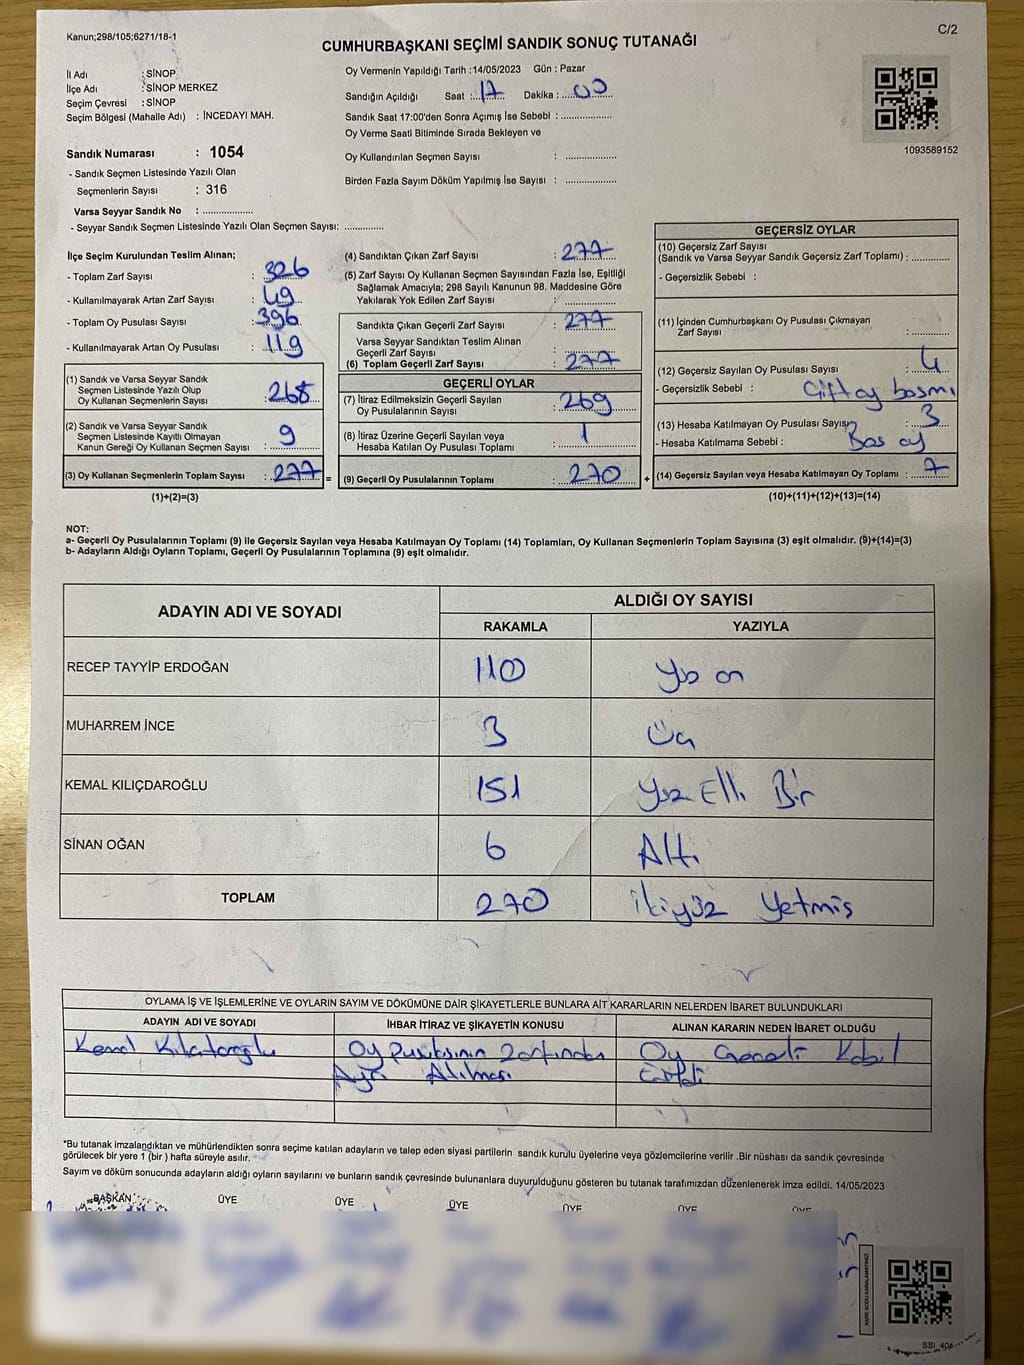 Kanun;298/105;6271/18-1
C/2
CUMHURBAŞKANI SEÇİMİ SANDIK SONUÇ TUTANAĞI
İl Adı : SİNOP
İlçe Adı : SİNOP MERKEZ
Seçim Çevresi : SİNOP
Seçim Bölgesi (Mahalle Adı) : İNCEDAYI MAH.
Sandık Numarası : 1054
- Sandık Seçmen Listesinde Yazılı Olan
Seçmenlerin Sayısı : 316
Varsa Seyyar Sandık No : ..................
- Seyyar Sandık Seçmen Listesinde Yazılı Olan Seçmen Sayısı: ..............
Oy Vermenin Yapıldığı Tarih :14/05/2023 Gün : Pazar
Sandığın Açıldığı Saat : 17 Dakika : 00
Sandık Saat 17:00'den Sonra Açımış İse Sebebi : ..................
Oy Verme Saati Bitiminde Sırada Bekleyen ve
Oy Kullandırılan Seçmen Sayısı : ..................
Birden Fazla Sayım Döküm Yapılmış İse Sayısı : ..................
1093589152
İlçe Seçim Kurulundan Teslim Alınan;
- Toplam Zarf Sayısı : 326
- Kullanılmayarak Artan Zarf Sayısı : 49
- Toplam Oy Pusulası Sayısı : 396
- Kullanılmayarak Artan Oy Pusulası : 119
(1) Sandık ve Varsa Seyyar Sandık
Seçmen Listesinde Yazılı Olup
Oy Kullanan Seçmenlerin Sayısı : 268
(2) Sandık ve Varsa Seyyar Sandık
Seçmen Listesinde Kayıtlı Olmayan
Kanun Gereği Oy Kullanan Seçmen Sayısı : 9
(3) Oy Kullanan Seçmenlerin Toplam Sayısı : 277
(1)+(2)=(3)
(4) Sandıktan Çıkan Zarf Sayısı : 277
(5) Zarf Sayısı Oy Kullanan Seçmen Sayısından Fazla İse, Eşitliği
Sağlamak Amacıyla; 298 Sayılı Kanunun 98. Maddesine Göre
Yakılarak Yok Edilen Zarf Sayısı : ..................
Sandıkta Çıkan Geçerli Zarf Sayısı : 277
Varsa Seyyar Sandıktan Teslim Alınan
Geçerli Zarf Sayısı : ..................
(6) Toplam Geçerli Zarf Sayısı : 277
GEÇERLİ OYLAR
(7) İtiraz Edilmeksizin Geçerli Sayılan
Oy Pusulalarının Sayısı : 269
(8) İtiraz Üzerine Geçerli Sayılan veya
Hesaba Katılan Oy Pusulası Toplamı : 1
= (9) Geçerli Oy Pusulalarının Toplamı : 270 +
GEÇERSİZ OYLAR
(10) Geçersiz Zarf Sayısı
(Sandık ve Varsa Seyyar Sandık Geçersiz Zarf Toplamı) : ............
- Geçersizlik Sebebi :
(11) İçinden Cumhurbaşkanı Oy Pusulası Çıkmayan
Zarf Sayısı : ............
(12) Geçersiz Sayılan Oy Pusulası Sayısı : 4
- Geçersizlik Sebebi : Çift oy basmı
(13) Hesaba Katılmayan Oy Pusulası Sayısı : 3
- Hesaba Katılmama Sebebi : Bos oy
(14) Geçersiz Sayılan veya Hesaba Katılmayan Oy Toplamı : 7
(10)+(11)+(12)+(13)=(14)
NOT:
a- Geçerli Oy Pusulalarının Toplamı (9) ile Geçersiz Sayılan veya Hesaba Katılmayan Oy Toplamı (14) Toplamları, Oy Kullanan Seçmenlerin Toplam Sayısına (3) eşit olmalıdır. (9)+(14)=(3)
b- Adayların Aldığı Oyların Toplamı, Geçerli Oy Pusulalarının Toplamına (9) eşit olmalıdır.
ADAYIN ADI VE SOYADI
ALDIĞI OY SAYISI
RAKAMLA YAZIYLA
RECEP TAYYİP ERDOĞAN 110 Yüz on
MUHARREM İNCE 3 Üç
KEMAL KILIÇDAROĞLU 151 Yüz Elli Bir
SİNAN OĞAN 6 Altı
TOPLAM 270 ikiyüz Yetmis
OYLAMA İŞ VE İŞLEMLERİNE VE OYLARIN SAYIM VE DÖKÜMÜNE DAİR ŞİKAYETLERLE BUNLARA AİT KARARLARIN NELERDEN İBARET BULUNDUKLARI
ADAYIN ADI VE SOYADI İHBAR İTİRAZ VE ŞİKAYETİN KONUSU ALINAN KARARIN NEDEN İBARET OLDUĞU
Kemal Oy Pusulasının Zarfından Oy Geçerli Kabul
Ayrı Atılması Edildi
*Bu tutanak imzalandıktan ve mühürlendikten sonra seçime katılan adayların ve talep eden siyasi partilerin sandık kurulu üyelerine veya gözlemcilerine verilir .Bir nüshası da sandık çevresinde
görülecek bir yere 1 (bir ) hafta süreyle asılır.
Sayım ve döküm sonucunda adayların aldığı oyların sayılarını ve bunların sandık çevresinde bulunanlara duyurulduğunu gösteren bu tutanak tarafımızdan düzenlenerek imza edildi. 14/05/2023
BAŞKAN ÜYE ÜYE ÜYE ÜYE ÜYE ÜYE
KARE KODU KARALAMAYINIZ!